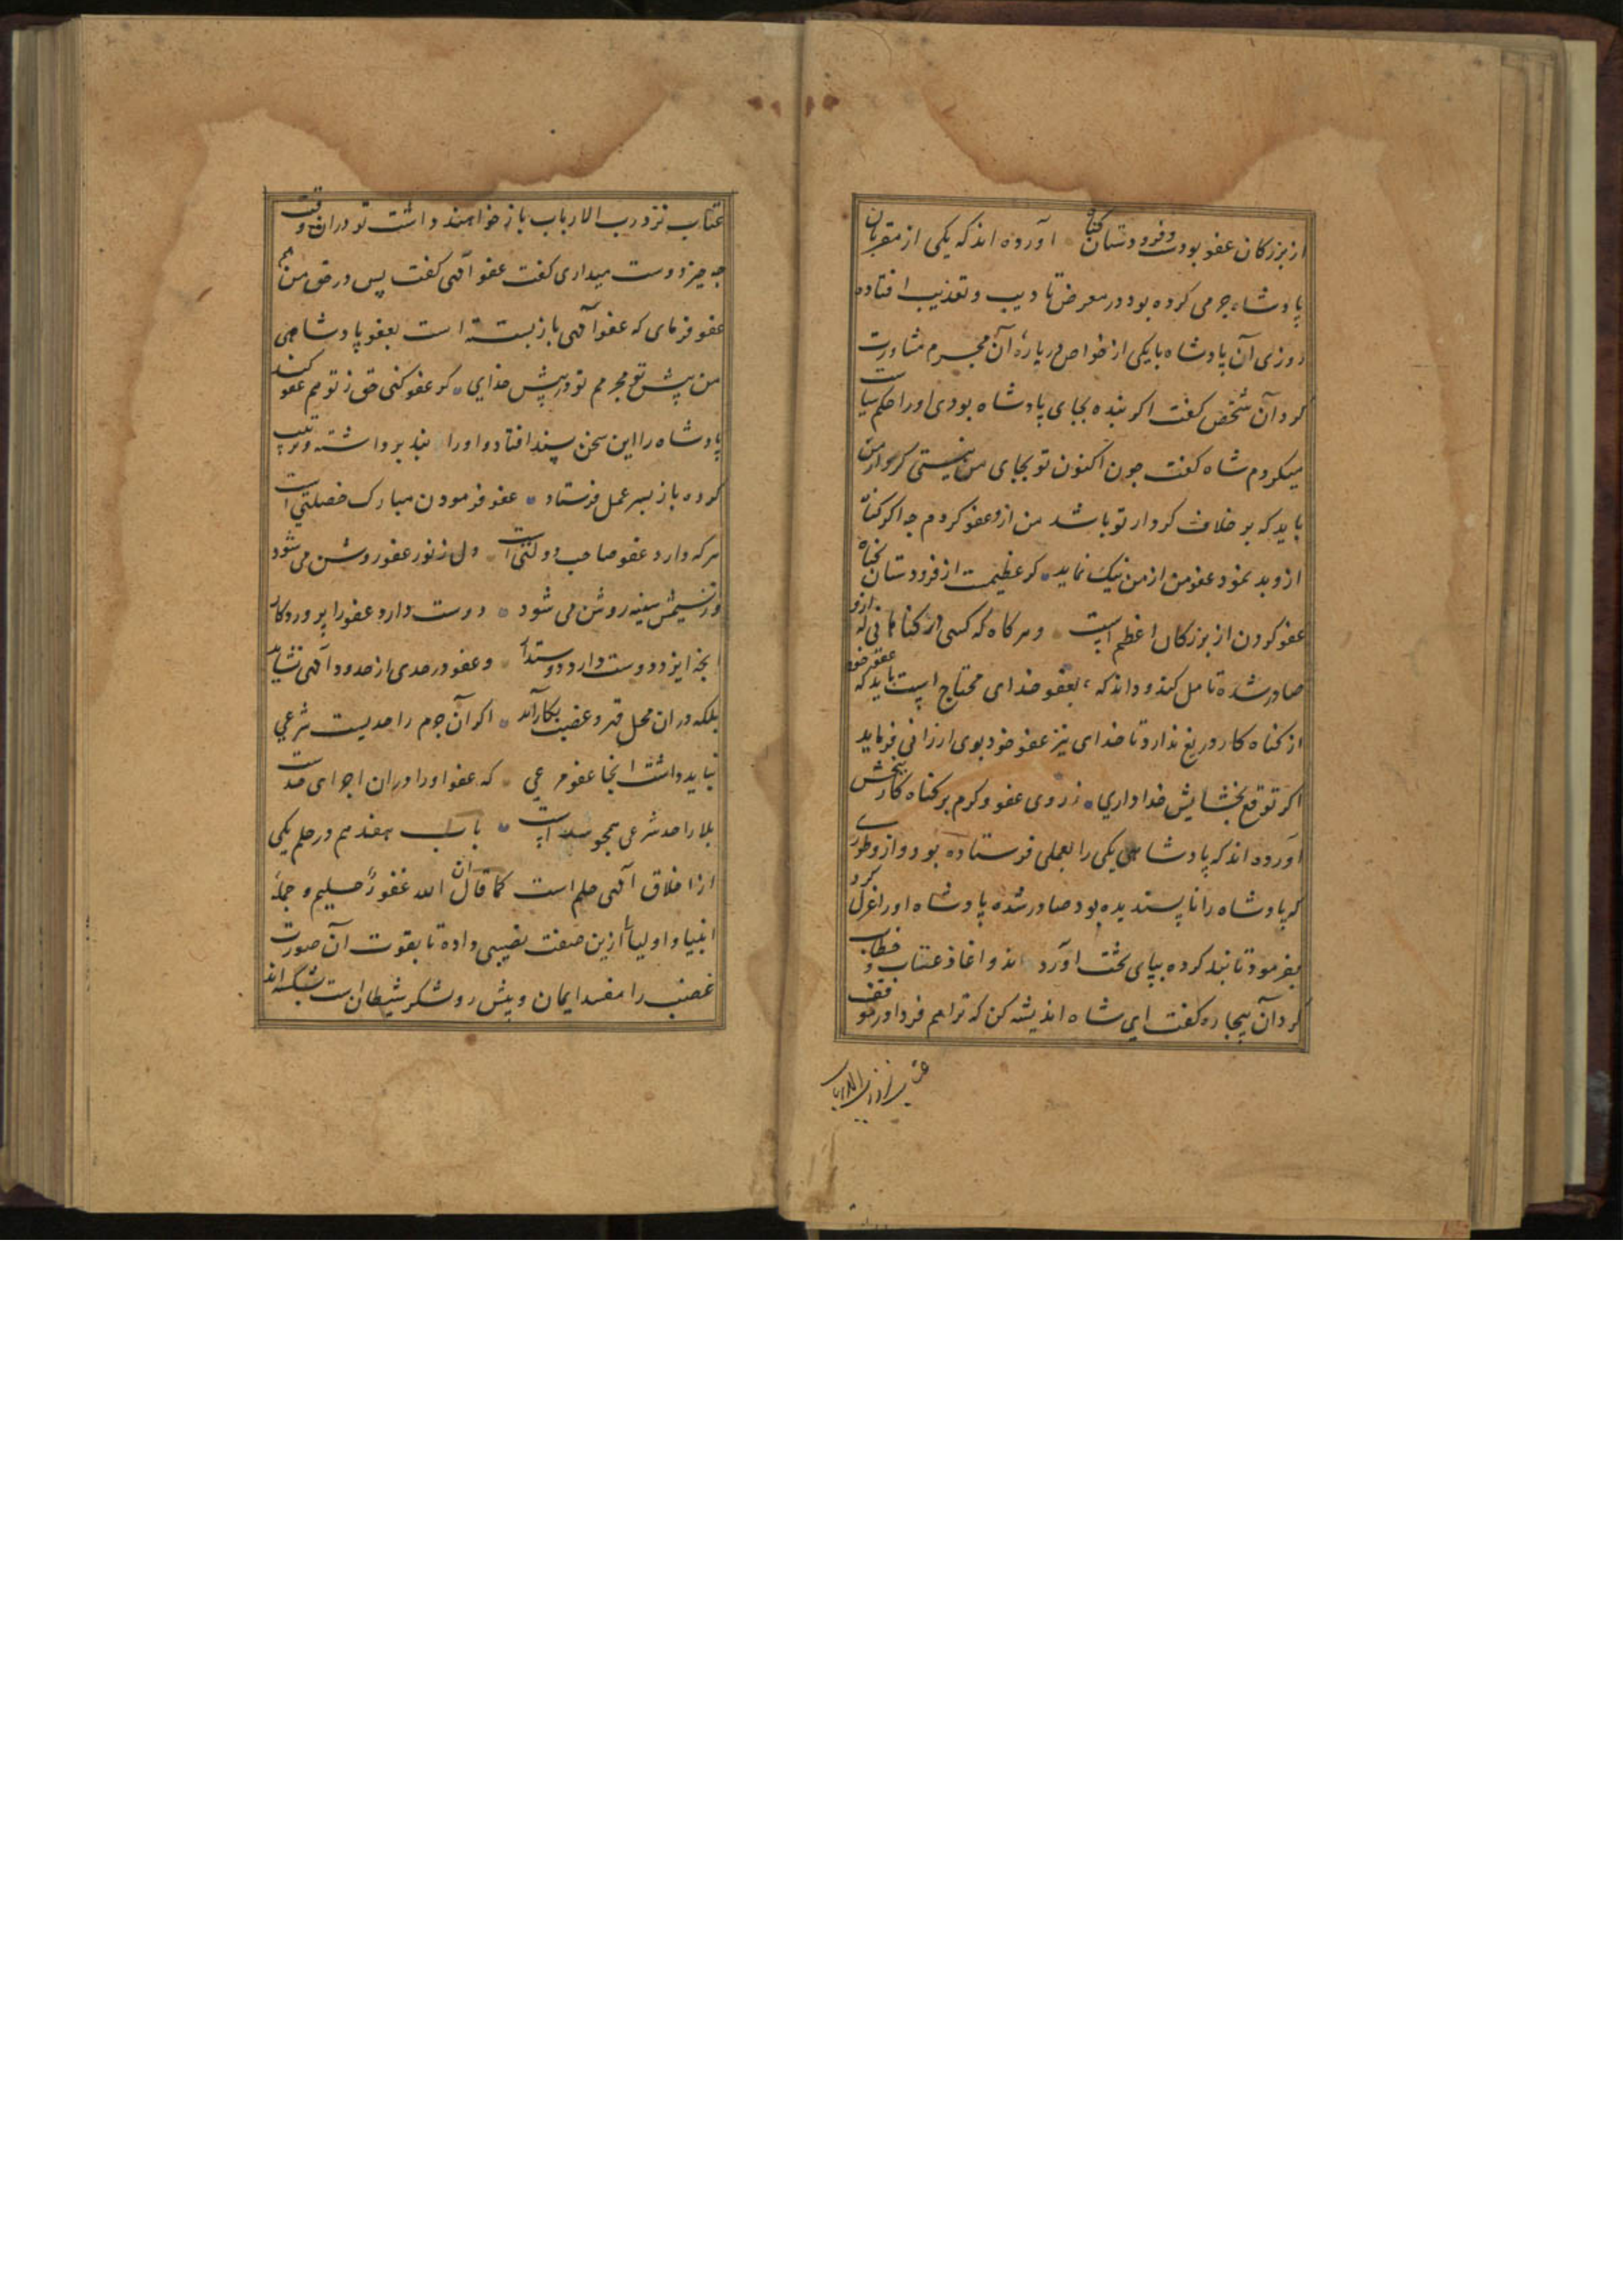 از بزرکان عفو بودست و فرودستان کناه آورده اند که یکی از مقربان
پادشاه جرمی کرده بود در معرض تادیب و تعذیب افتاده
روزی آن پادشاه با یکی از خواص درباره آن مجرم مشاورت
کرد آن شخص کفت اکر بنده بجای پادشاه بودی اورا حکم سیاست
میکردم شاه کفت چون اکنون تو بجای من نیستی کردار من
باید که بر خلاف کردار تو باشد من ازو عفو کردم چه اکر کناه
ازو بد نمود عفو من از من نیک نماید کر عظیمت از فرودستان کناه
عفو کردن از بزرکان اعظم است و هر کاه که کسی در کناهانی که ازو
صادر شده تامل کند و داند که بعفو خدای محتاج است باید که عفو خود
از کناه کار دریغ ندارد تا خدای نیز عفو خود بوی ارزانی فرماید
اکر توقع بخشایش خدا داری ز روی عفو و کرم بر کناه کار ببخش
آورده اند که پادشاهی یکی را بعملی فرستاده بود و ازو طوری
که پادشاه را ناپسندیده بود صادر شده پادشاه اورا عزل کرد
بفرمود تا بند کرده بپای تخت آورد اند و اغاذ عتاب و خطاب
کرد آن بیچاره کفت ای شاه اندیشه کن که ترا هم فردا در موقف
عتاب نزد رب الارباب
عتاب نزد رب الارباب باز خواهند داشت تو دران وقت
چه چیز دوست میداری کفت عفو آلهی کفت پس در حق من هم
عفو فرمای که عفو آلهی باز بسته است بعفو پادشاهی
من پیش تو مجرمم تو در پیش خدای کر عفو کنی حق ز تو هم عفو کند
پادشاه را این سخن پسند افتاد و اورا بند برداشته و تربیت
کرده باز بسر عمل فرستاد عفو فرمودن مبارک خصلتی است
هر که دارد عفو صاحب دولتی است دل ز نور عفو روشن می شود
وز نسیمش سینه روشن می شود دوست دارد عفو را پروردکار
آنچه ایزد دوست دارد دوست دار و عفو در حدی از حدود آلهی نشاید
بلکه دران محل قهر و غضب بکار آید اکر آن جرم را حدیست شرعی
نباید داشت انجا عفو مرعی که عفو اورا دران اجرای حدست
بلا را حد شرعی همچو سدست باب هفدهم در حلم یکی
از اخلاق آلهی حلم است کما قال ان الله غفور حلیم و جمله
انبیا و اولیا را ازین صفت نصیبی داده تا بقوت آن صورت
غضب را مفسد ایمان و پیش رو لشکر شیطان است شکسته اند